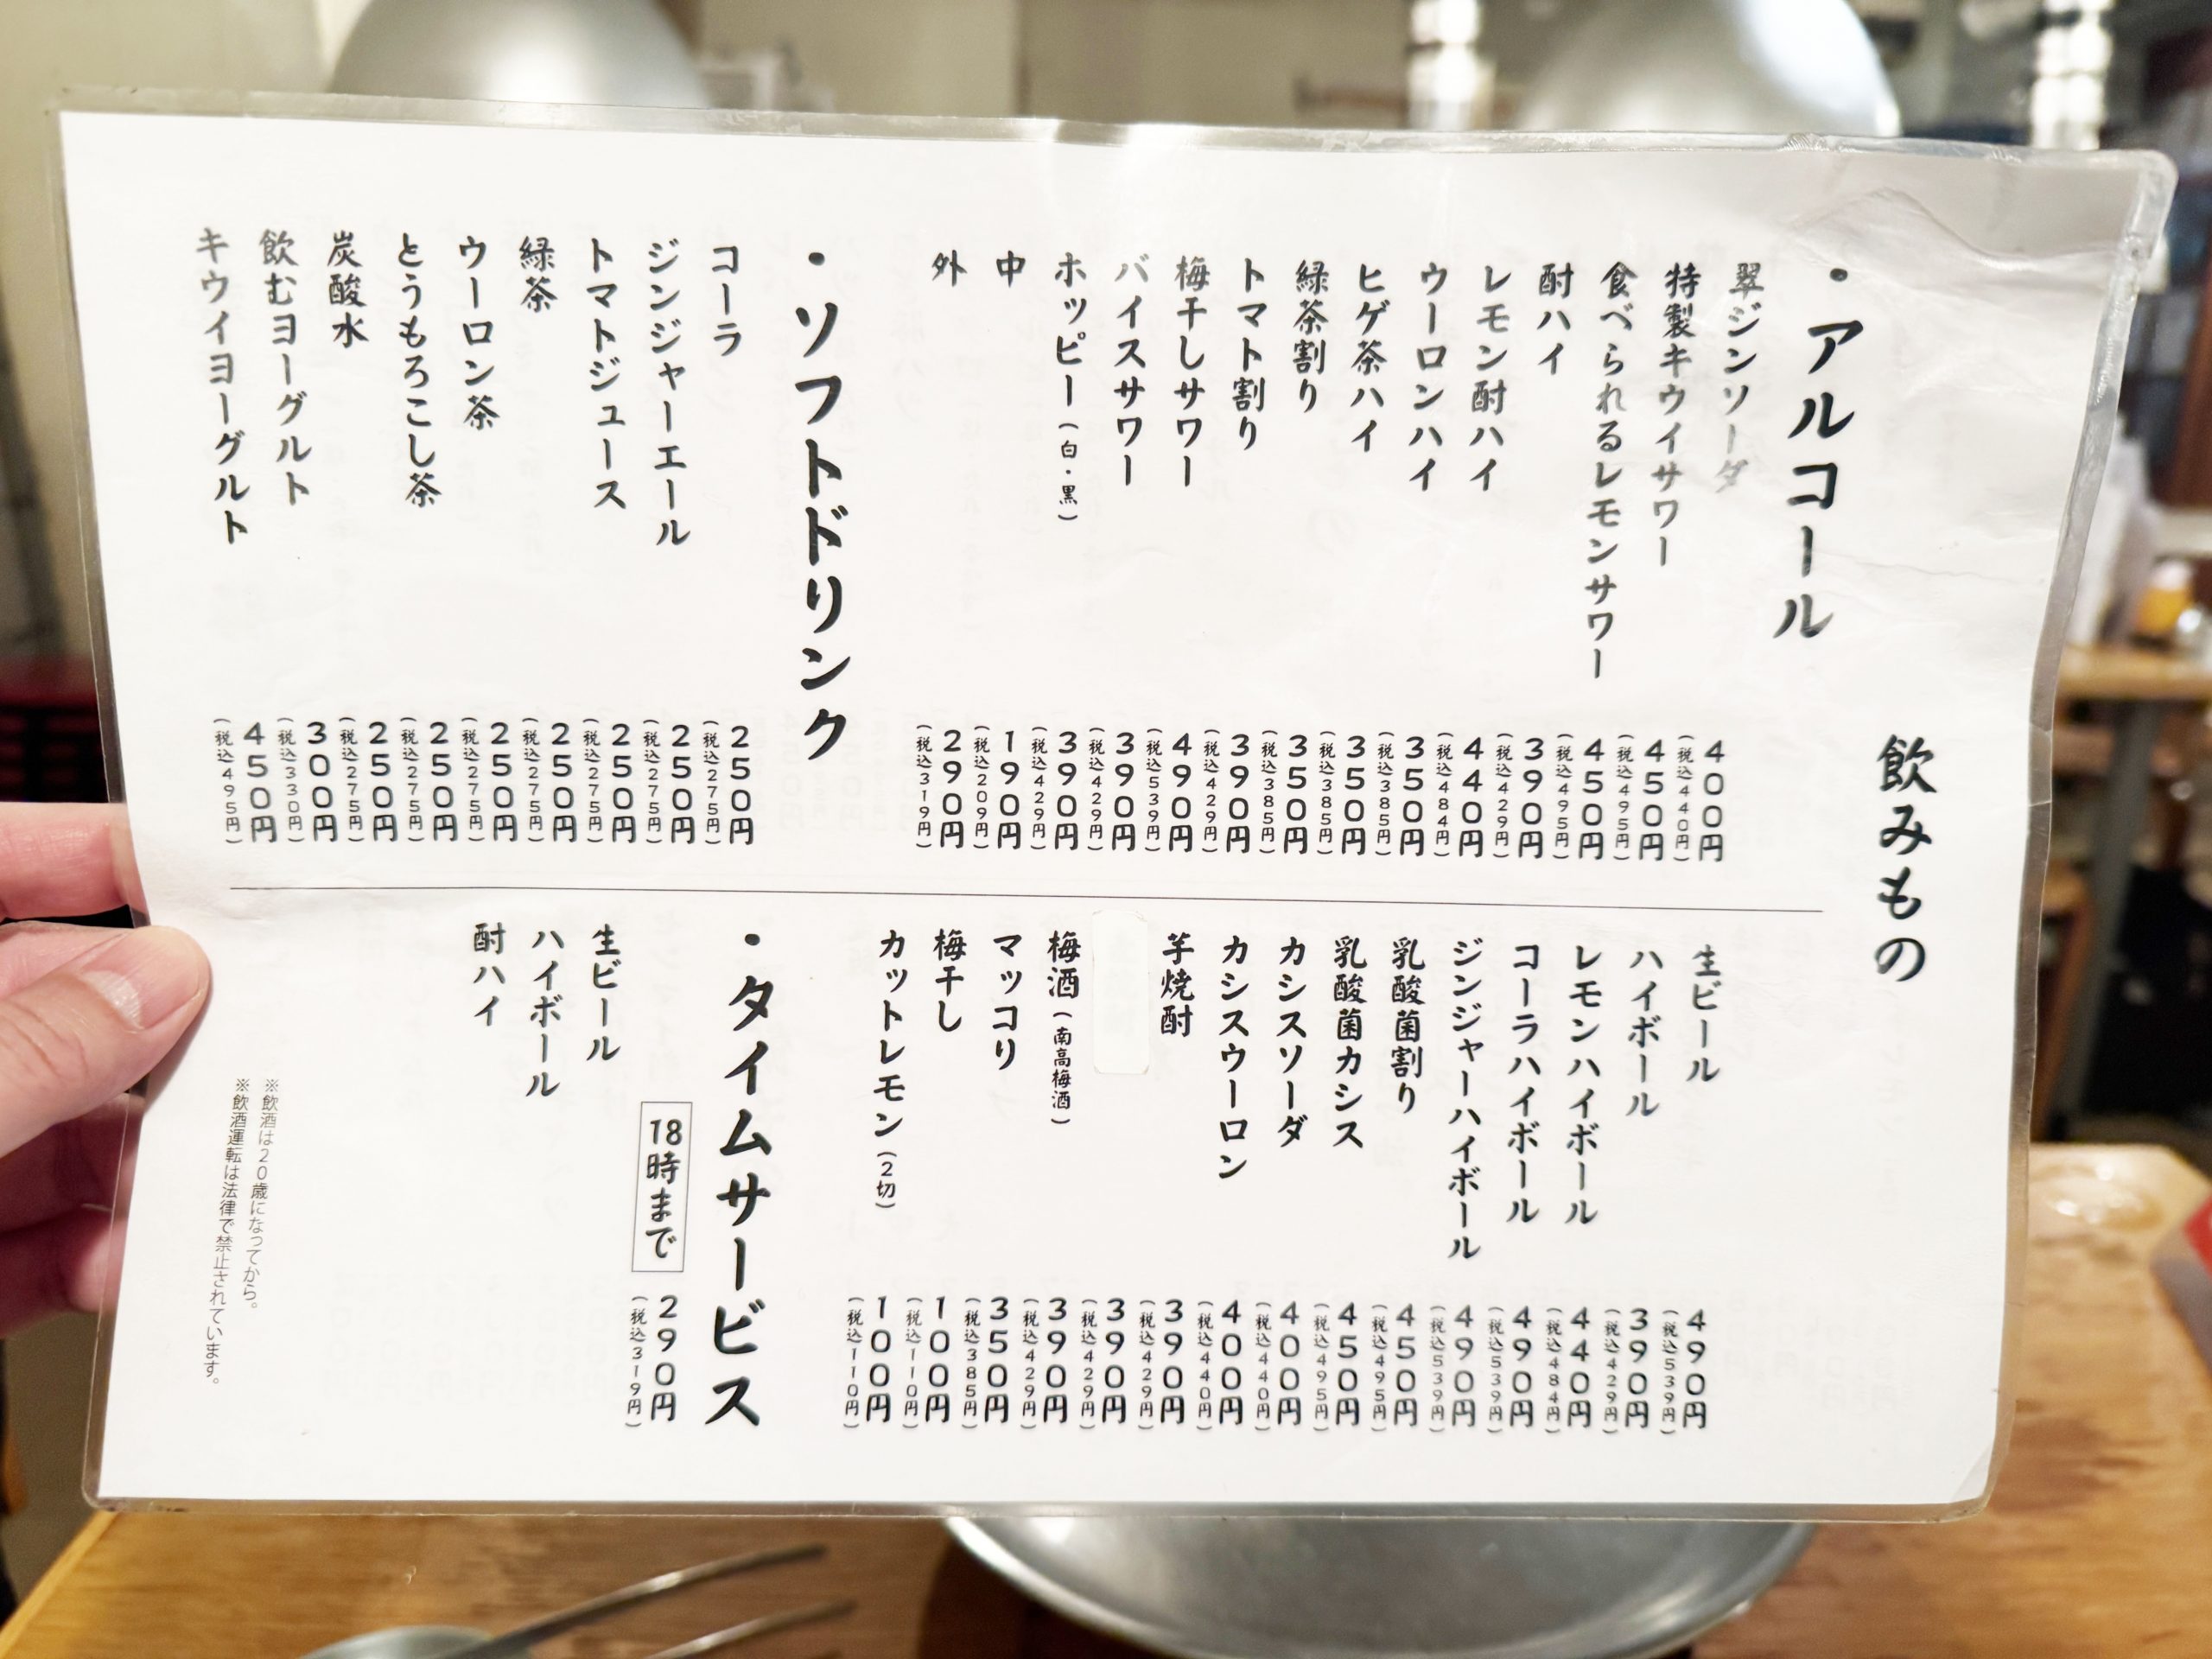 飲みもの
・アルコール
翠ジンソーダ 400円(税込440円)
特製キウイサワー 450円(税込495円)
食べられるレモンサワー 450円(税込495円)
酎ハイ 390円(税込429円)
レモン酎ハイ 440円(税込484円)
ウーロンハイ 350円(税込385円)
ヒゲ茶ハイ 350円(税込385円)
緑茶割り 350円(税込385円)
トマト割り 390円(税込429円)
梅干しサワー 490円(税込539円)
バイスサワー 390円(税込429円)
ホッピー(白・黒) 390円(税込429円)
中 190円(税込209円)
外 290円(税込319円)
・ソフトドリンク
コーラ 250円(税込275円)
ジンジャーエール 250円(税込275円)
トマトジュース 250円(税込275円)
緑茶 250円(税込275円)
ウーロン茶 250円(税込275円)
とうもろこし茶 250円(税込275円)
炭酸水 250円(税込275円)
飲むヨーグルト 300円(税込330円)
キウイヨーグルト 450円(税込495円)
生ビール 490円(税込539円)
ハイボール 390円(税込429円)
レモンハイボール 440円(税込484円)
コーラハイボール 490円(税込539円)
ジンジャーハイボール 490円(税込539円)
乳酸菌割り 450円(税込495円)
乳酸菌カシス 450円(税込495円)
カシスソーダ 400円(税込440円)
カシスウーロン 400円(税込440円)
芋焼酎 390円(税込429円)
390円(税込429円)
梅酒(南高梅酒) 390円(税込429円)
マッコリ 350円(税込385円)
梅干し 100円(税込110円)
カットレモン(2切) 100円(税込110円)
・タイムサービス
18時まで 290円(税込319円)
生ビール
ハイボール
酎ハイ
※飲酒は20歳になってから。
※飲酒運転は法律で禁止されています。